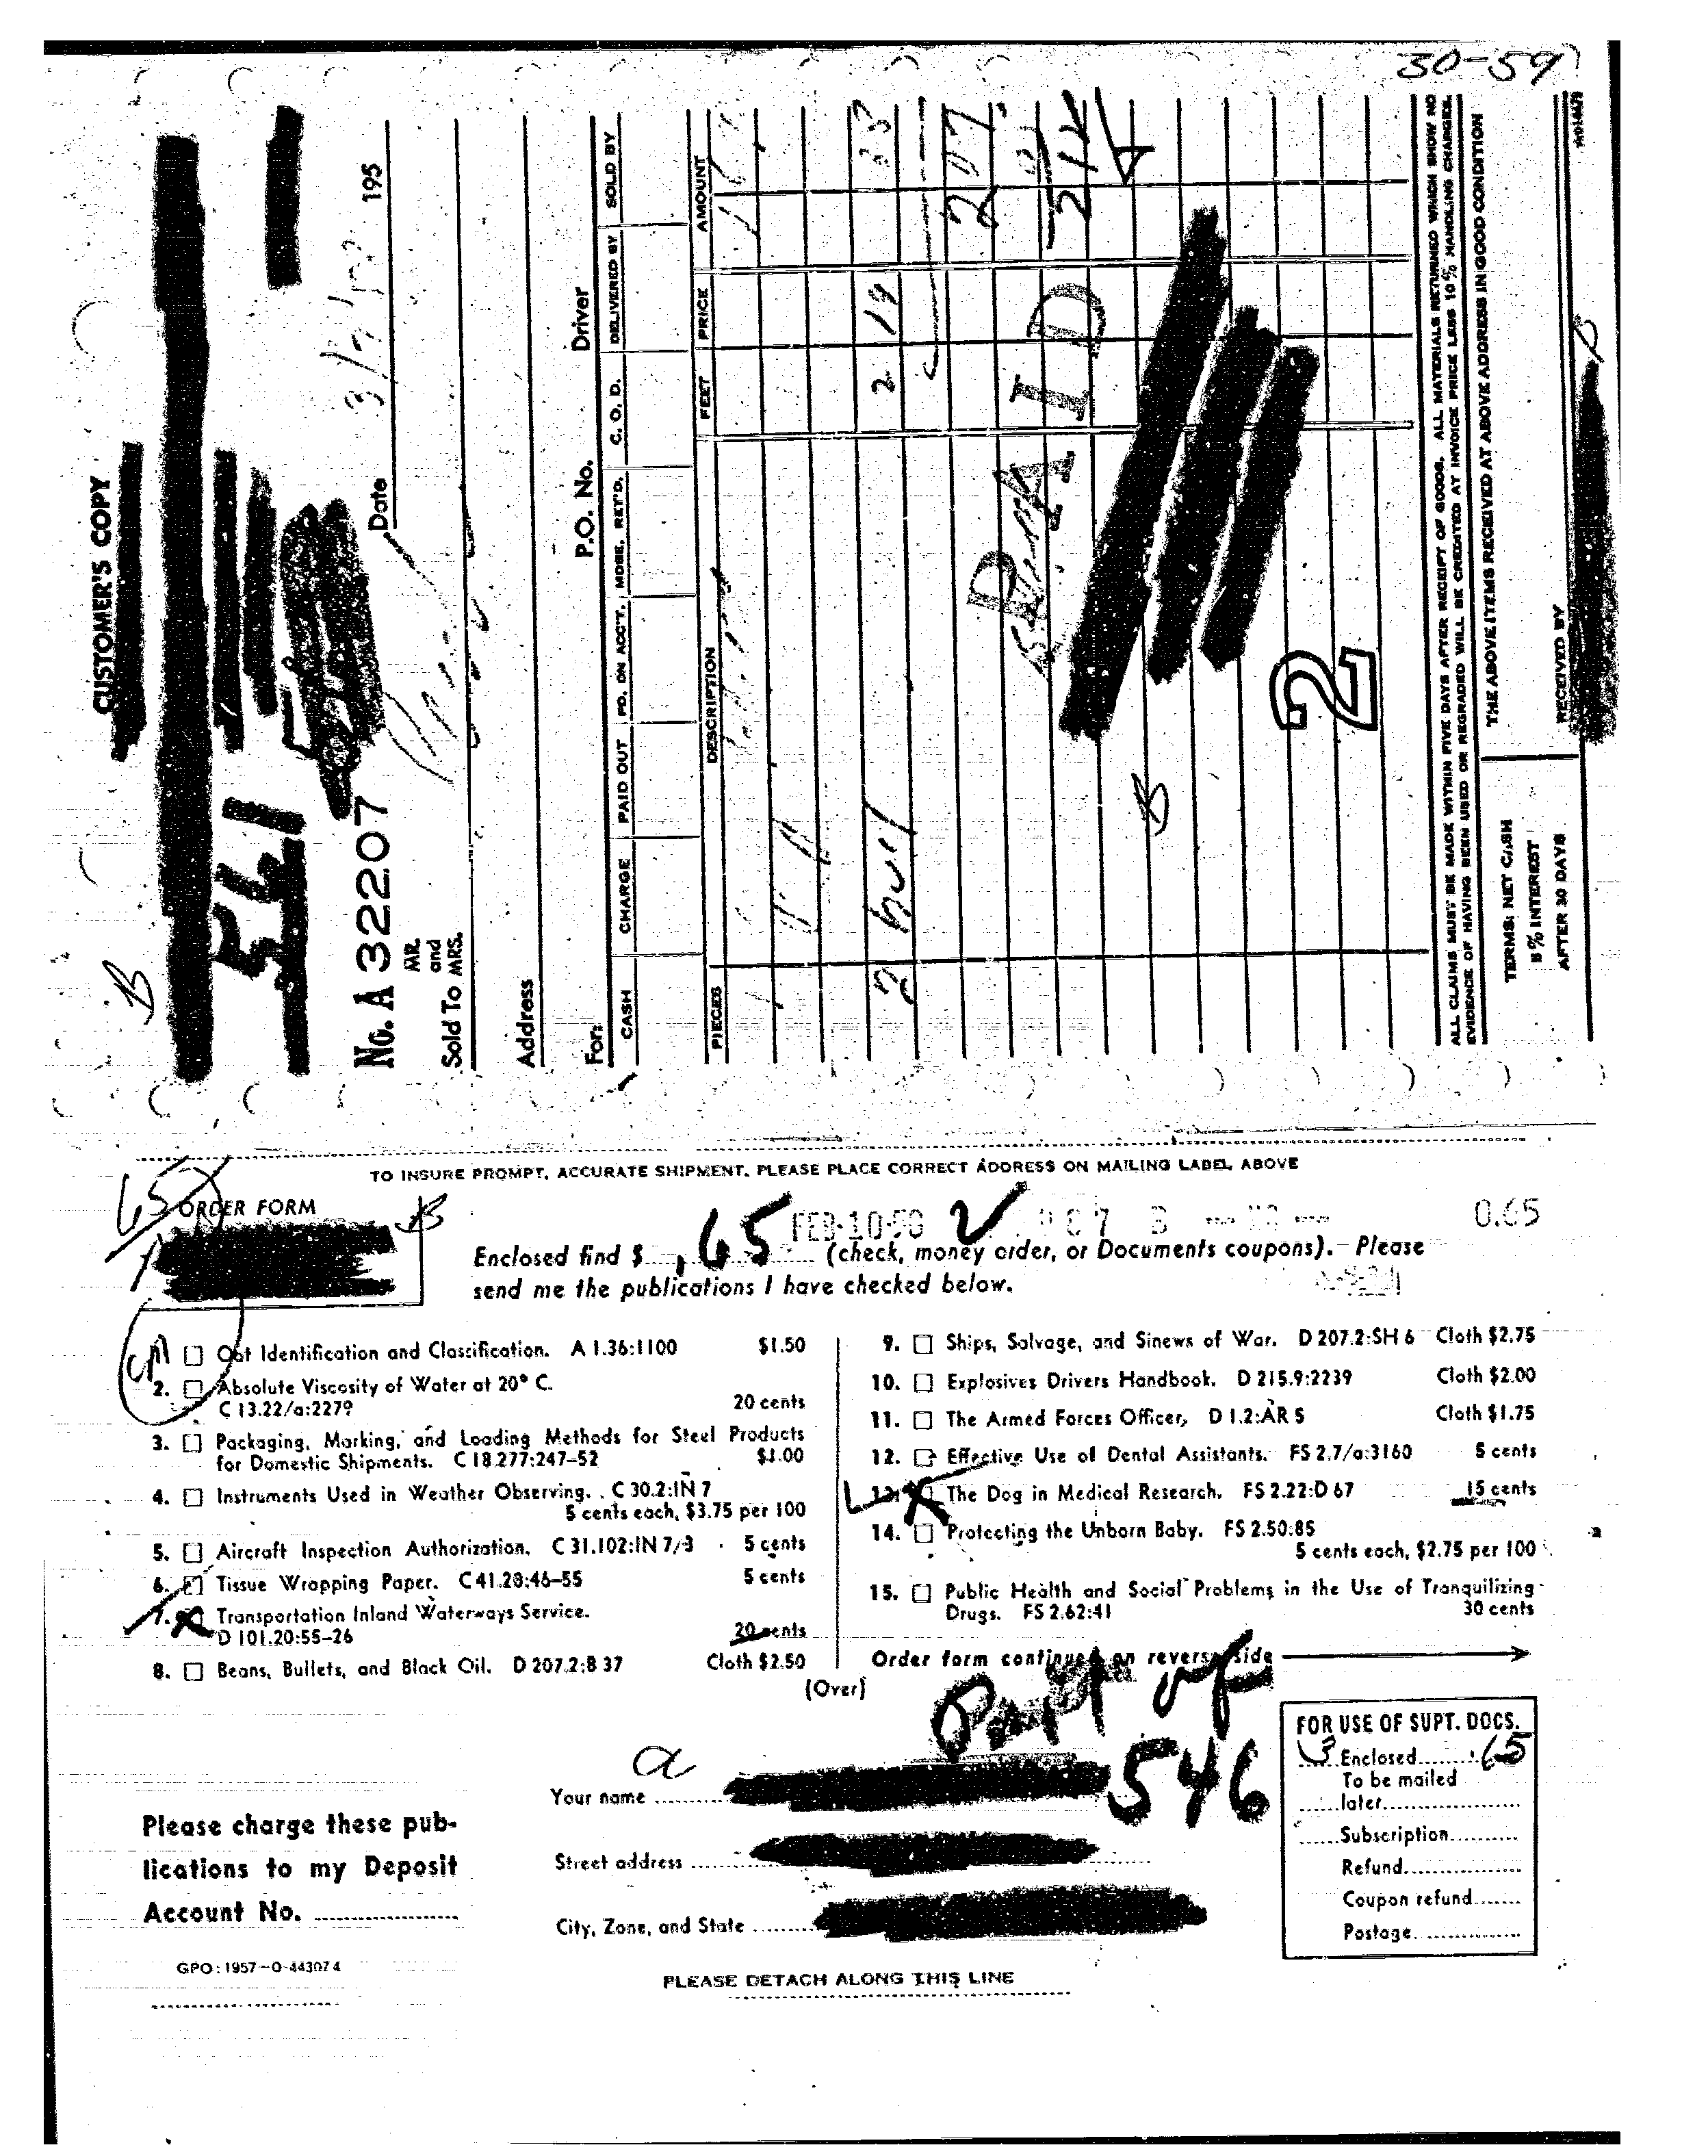 30-59
CUSTOMER'S COPY
B
541
No. A 322207
Date 195
MR.
and
Sold To MRS.
Address
For: P.O. No. Driver
CASH CHARGE PAID OUT PD. ON ACC'T. MDSE. RET'D. C. O. D. DELIVERED BY SOLD BY
PIECES DESCRIPTION FEET PRICE AMOUNT
2 2 19 33
2 07
PAID
2 14
B
2
ALL CLAIMS MUST BE MADE WITHIN FIVE DAYS AFTER RECEIPT OF GOODS. ALL MATERIALS RETURNED WHICH SHOW NO
EVIDENCE OF HAVING BEEN USED OR REGRADED WILL BE CREDITED AT INVOICE PRICE LESS 10% HANDLING CHARGES.
TERMS: NET CASH
5% INTEREST
AFTER 30 DAYS
THE ABOVE ITEMS RECEIVED AT ABOVE ADDRESS IN GOOD CONDITION
RECEIVED BY
TO INSURE PROMPT, ACCURATE SHIPMENT, PLEASE PLACE CORRECT ADDRESS ON MAILING LABEL ABOVE
65
ORDER FORM
B
FEB-10-58 0.65
Enclosed find $ .65 (check, money order, or Documents coupons). Please
send me the publications I have checked below.
1. Oat Identification and Classification. A 1.36:1100 $1.50
2. Absolute Viscosity of Water at 20° C.
C 13.22/a:2279 20 cents
3. Packaging, Marking, and Loading Methods for Steel Products
for Domestic Shipments. C 18.277:247-52 $1.00
4. Instruments Used in Weather Observing. C 30.2:IN 7
5 cents each, $3.75 per 100
5. Aircraft Inspection Authorization. C 31.102:IN 7/3 5 cents
6. Tissue Wrapping Paper. C 41.28:46-55 5 cents
7. Transportation Inland Waterways Service.
D 101.20:55-26 20 cents
8. Beans, Bullets, and Black Oil. D 207.2:B 37 Cloth $2.50
(Over)
9. Ships, Salvage, and Sinews of War. D 207.2:SH 6 Cloth $2.75
10. Explosives Drivers Handbook. D 215.9:2239 Cloth $2.00
11. The Armed Forces Officer, D 1.2:AR 5 Cloth $1.75
12. Effective Use of Dental Assistants. FS 2.7/a:3160 5 cents
13. The Dog in Medical Research. FS 2.22:D 67 15 cents
14. Protecting the Unborn Baby. FS 2.50:85
5 cents each, $2.75 per 100
15. Public Health and Social Problems in the Use of Tranquilizing
Drugs. FS 2.62:41 30 cents
Order form continued on reverse side
Part of
546
a
Your name
Street address
City, Zone, and State
Please charge these pub-
lications to my Deposit
Account No.
GPO: 1957-O-443074
FOR USE OF SUPT. DOCS.
3 Enclosed .65
To be mailed
later
Subscription
Refund
Coupon refund
Postage
PLEASE DETACH ALONG THIS LINE